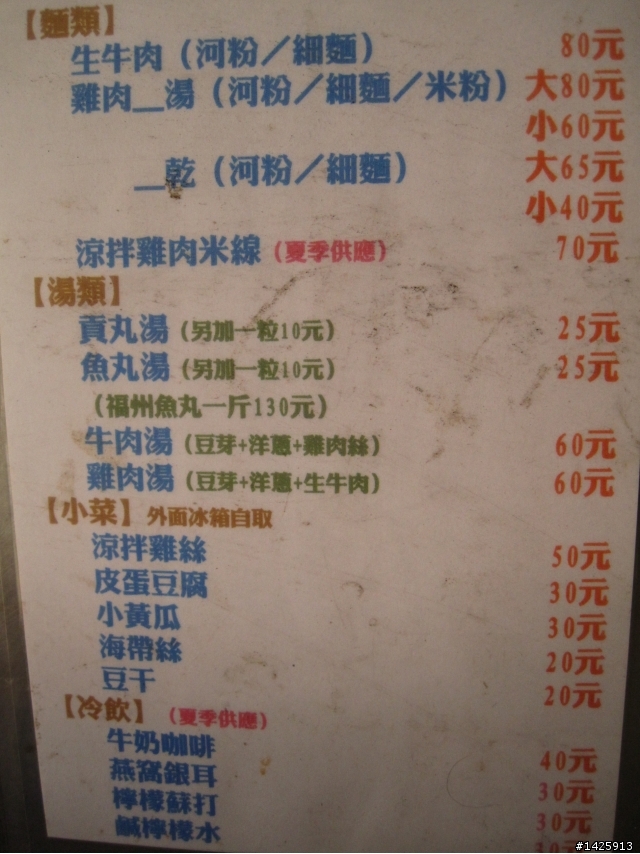 【麵類】
生牛肉（河粉／細麵） 80元
雞肉__湯（河粉／細麵／米粉） 大80元
小60元
__乾（河粉／細麵） 大65元
小40元
涼拌雞肉米線（夏季供應） 70元
【湯類】
貢丸湯（另加一粒10元） 25元
魚丸湯（另加一粒10元） 25元
（福州魚丸一斤130元）
牛肉湯（豆芽+洋蔥+雞肉絲） 60元
雞肉湯（豆芽+洋蔥+生牛肉） 60元
【小菜】外面冰箱自取
涼拌雞絲 50元
皮蛋豆腐 30元
小黃瓜 30元
海帶絲 20元
豆干 20元
【冷飲】（夏季供應）
牛奶咖啡 40元
燕窩銀耳 30元
檸檬蘇打 30元
鹹檸檬水 30元
#1425913